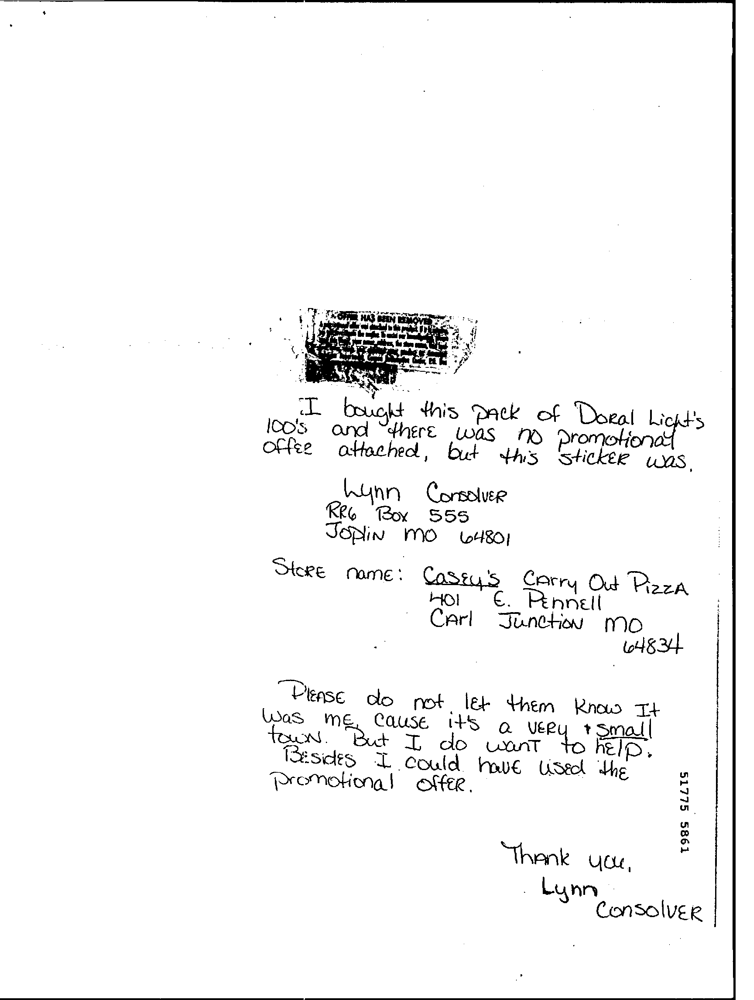 OFFER HAS BEEN REMOVED
I bought this pack of Doral Light's
100's and there was no promotional
offer attached, but this sticker was.
Lynn Consolver
RR6 Box 555
Joplin MO 64801
Store name: Casey's Carry Out Pizza
401 E. Pennell
Carl Junction MO
64834
Please do not let them know It
was me, cause it's a very small
town. But I do want to help.
Besides I could have used the
promotional offer.
Thank you,
Lynn
Consolver
51775 5861